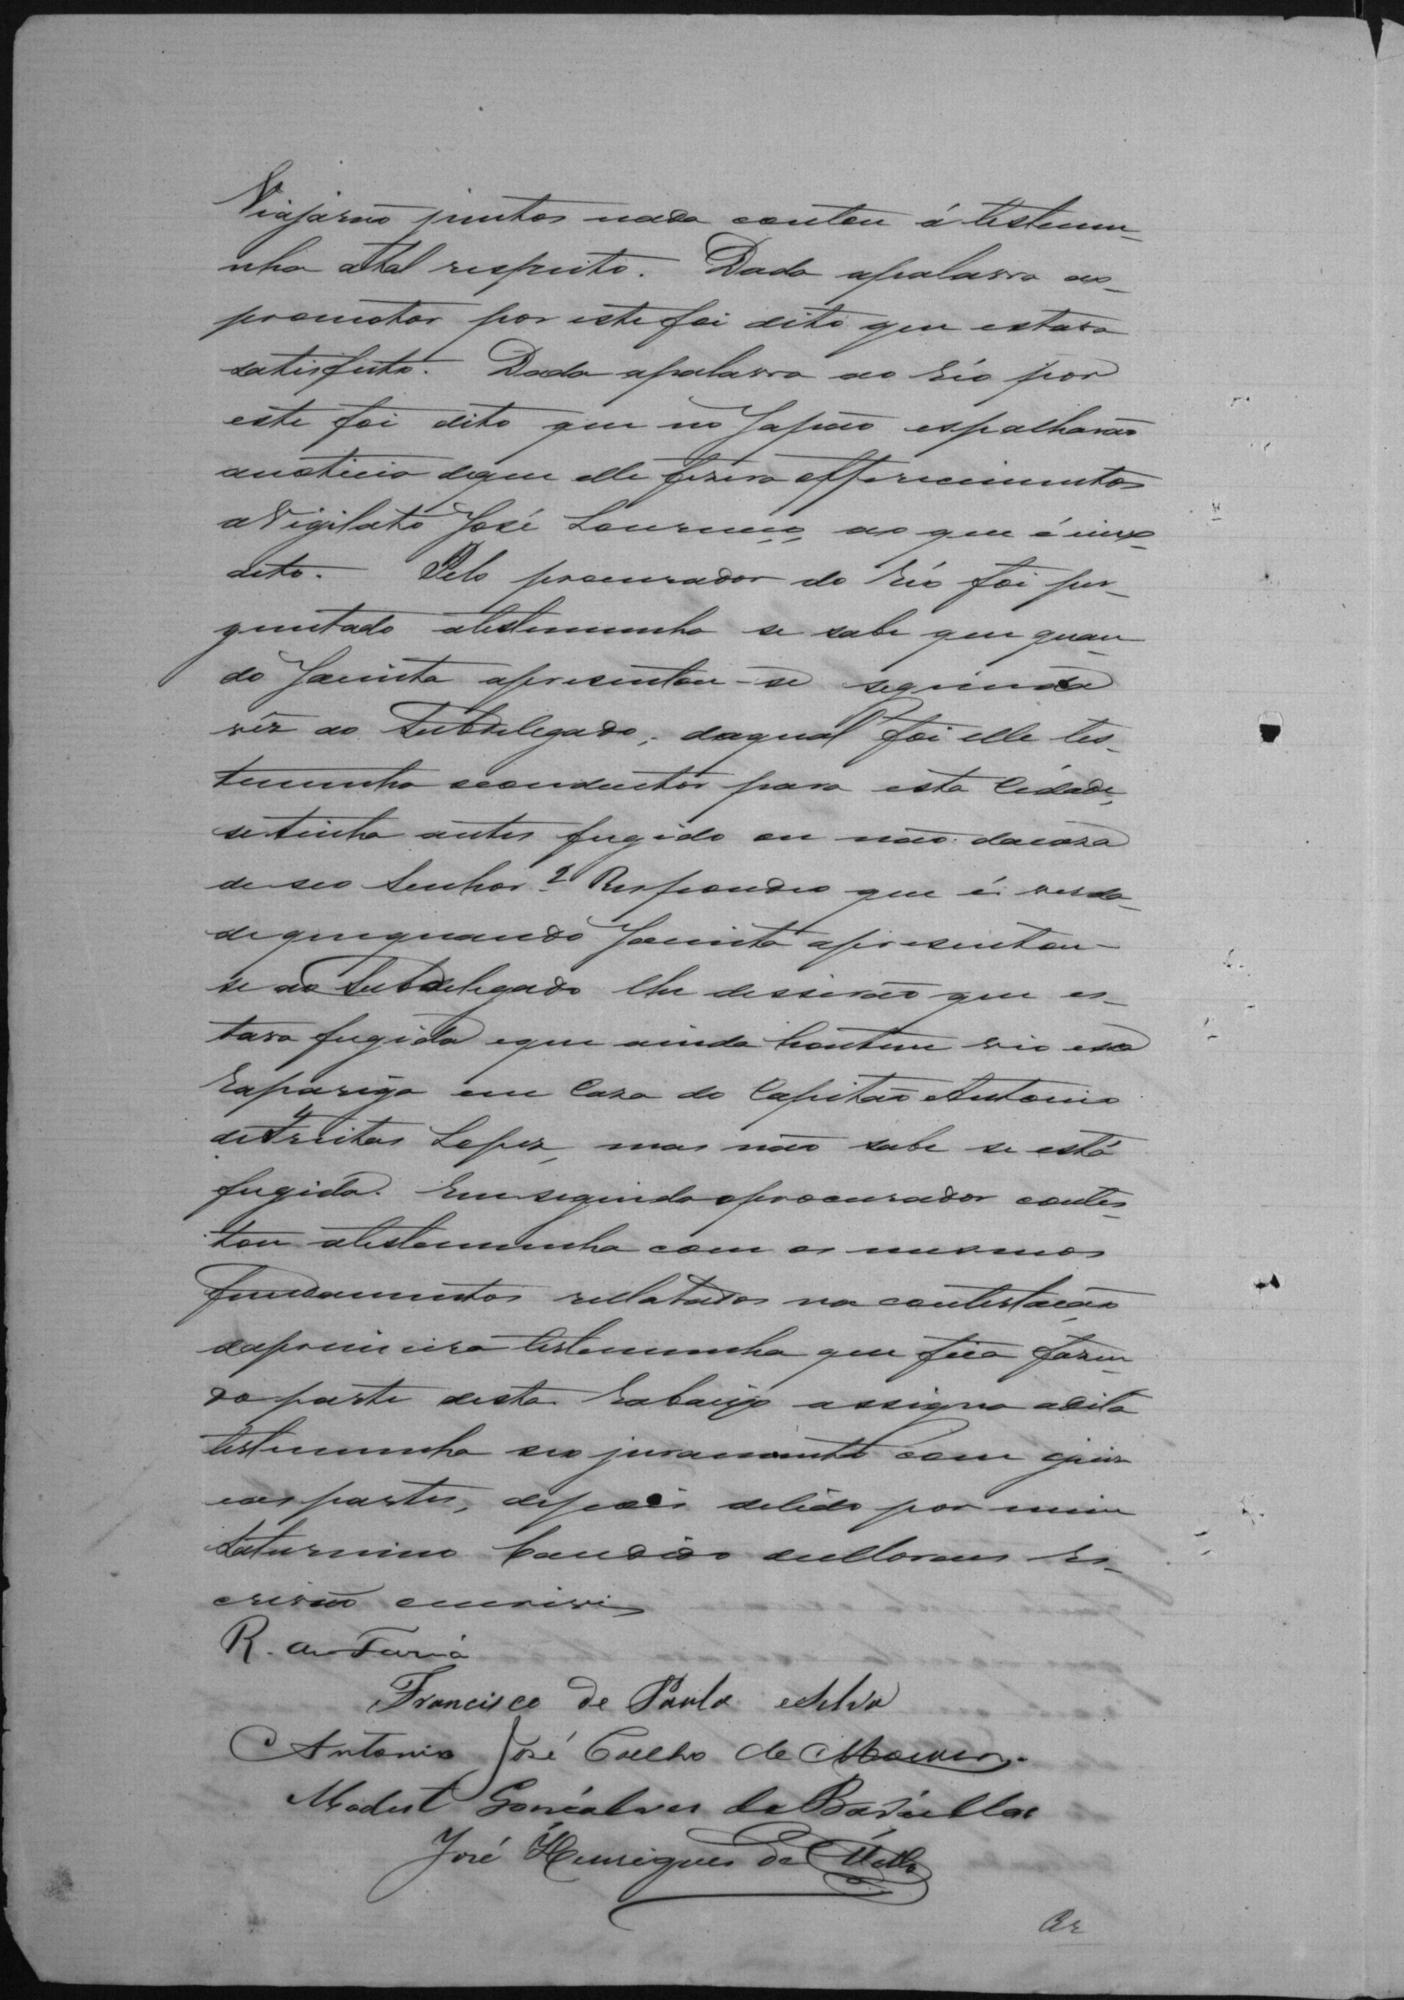 Viajarão juntos nada contou á testemu-
nha atal respeito. Dada apalavra ao
promotor por este foi dito que estava
satisfeito. Dada apalavra ao Réo por
este foi dito que no Japão espalharão
anoticia deque elle fizera offerecimentos
a Vigilato José Lourenço, ao que é
dito. Pelo procurador do Réo foi per-
guntado atestemunha se sabe que quan-
do Jacinta apresentou-se segunda
vêz ao Subdelegado, daqual foi elle tes-
temunha conductor para esta Cidade,
setinha antes fugido ou não dacaza
de seo Senhor? Respondeo que é verda-
de quequando Jacinta apresentou-
se ao Subdelegado lhe disserão que es-
tava fugida eque ainda hontem vio essa
Rapariga em Caza do Capitão Antonio
deFreitas Lopes, mas não sabe se está
fugida. Em seguida oprocurador contes-
tou atestemunha com os mesmos
fundamentos rellatados na contestação
daprimeira testemunha que fica fazen-
do parte desta. Eabaixo assigna adita
testemunha seo juramento com ojuiz
eas partes, depois delido por mim
Saturnino Candido Es-
crivão escrivi
R. de Faria
Francisco de Paula eSilva
Antonio José Coelho de Moura
Modest Gonçalves de
José Henriques de Mello